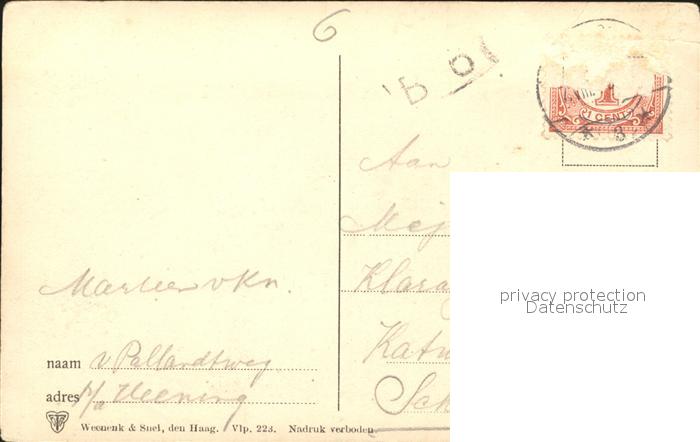 6
1 CENT
3
Aan
Mej
Klara
Katw
Sch
privacy protection
Datenschutz
naam v Pallandtweg
adres p/a
Weenenk & Snel, den Haag. Vlp. 223. Nadruk verboden.